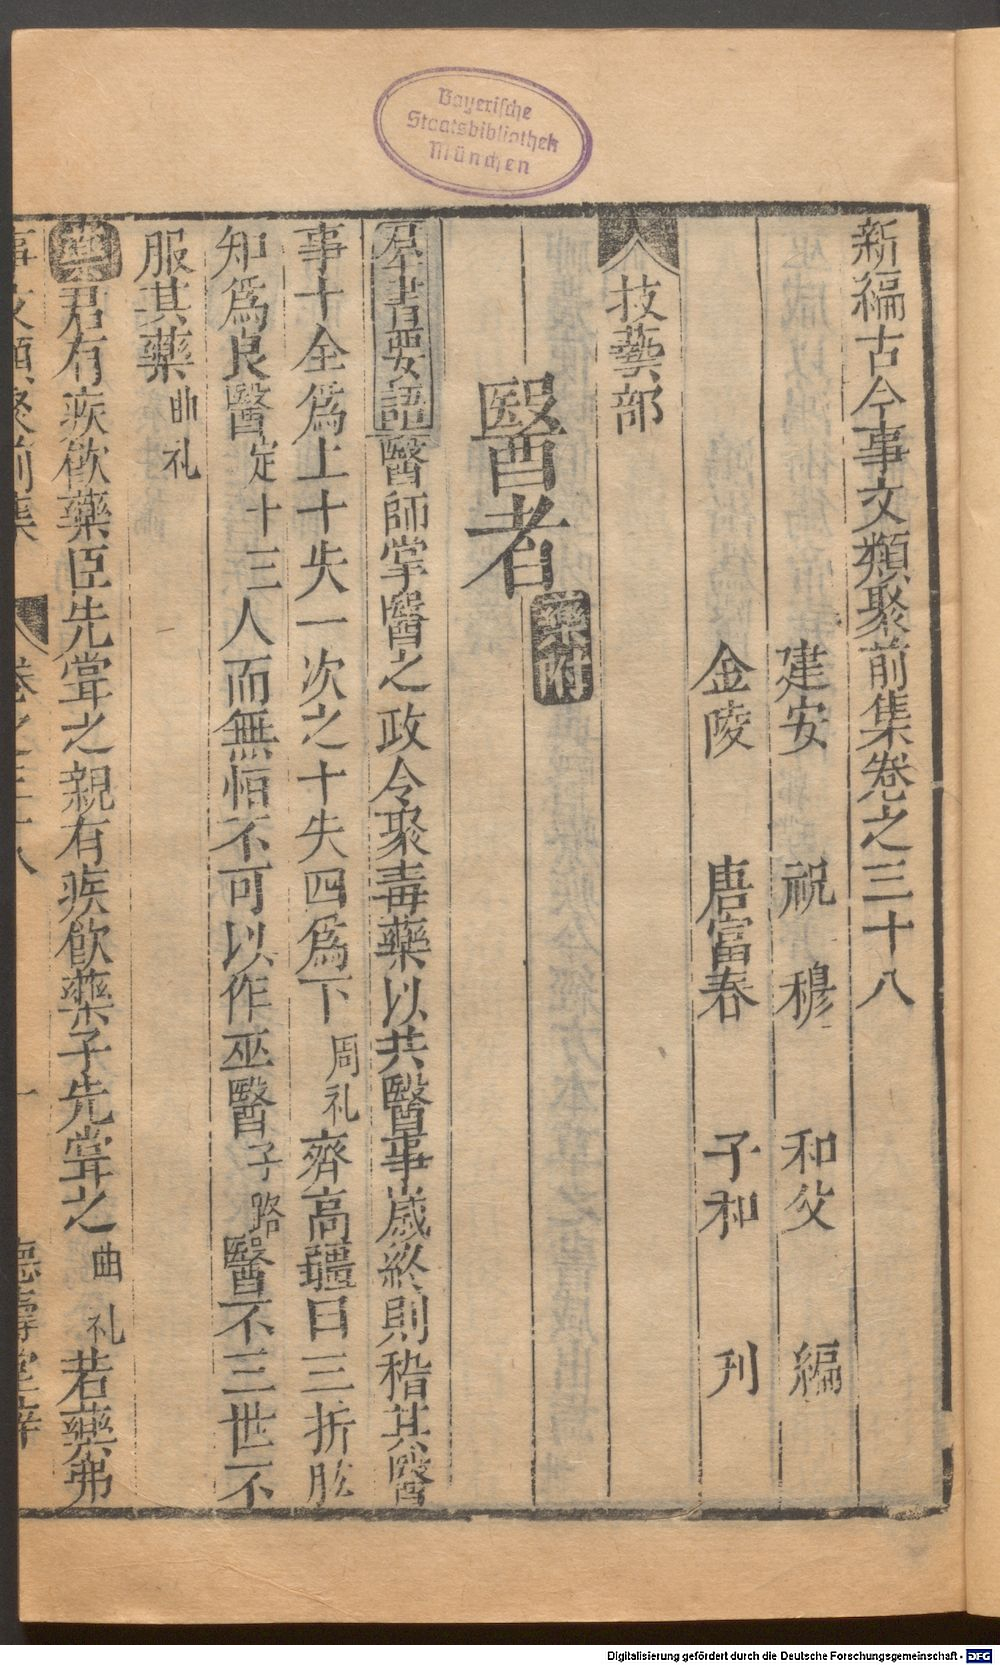 Bayerische
Staatsbibliothek
München
新編古今事文類聚前集卷之三十八
建安 祝 穆 和父 編
金陵 唐富春 子和 刋
技藝部
醫者 藥附
羣書要語 醫師掌醫之政令聚毒藥以共醫事嵗終則稽其醫
事十全爲上十失一次之十失四爲下 周礼 齊高彊曰三折肱
知爲良醫 定十三 人而無恒不可以作巫醫 子路 醫不三世不
服其藥 曲礼
藥 君有疾飲藥臣先甞之親有疾飲藥子先甞之 曲礼 若藥弗
事文類聚前集 卷之三十八 一 德壽堂梓
Digitalisierung gefördert durch die Deutsche Forschungsgemeinschaft - DFG